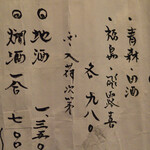 ・青森・田酒
・福島 飛露喜
各 九八〇
入荷次第
◎地酒 一、三五〇
◎燗酒 一合 七〇〇